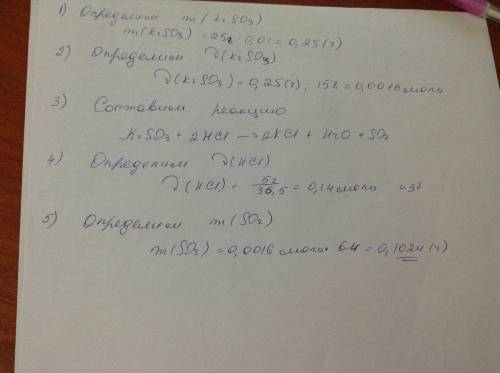 1) Определим m(K₂SO₃)
m(K₂SO₃) = 25г · 0,01 = 0,25(г)
2) Определим ν(K₂SO₃)
ν(K₂SO₃) = 0,25(г) : 158 = 0,0016 моль
3) Составим реакцию
K₂SO₃ + 2HCl → 2KCl + H₂O + SO₂
4) Определим ν(HCl)
ν(HCl) = 5г/36,5 = 0,14 моль изб
5) Определим m(SO₂)
m(SO₂) = 0,0016 моль · 64 = 0,1024(г)